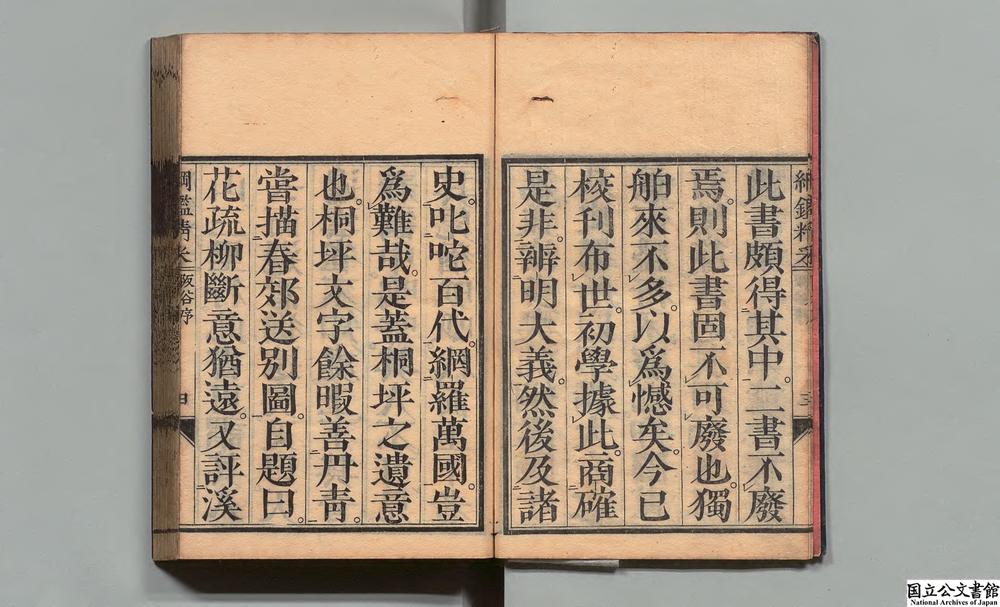 此書頗得其中。二書不廢
焉。則此書固不可廢也。獨
舶來不多。以爲憾矣。今已
校刊布世。初學據此。商確
是非。辨明大義。然後及諸
史。叱咤百代。網羅萬國。豈
爲難哉。是蓋桐坪之遺意
也。桐坪文字餘暇善丹青。
嘗描春郊送別圖。自題曰。
花疏柳斷意猶遠。又評溪
綱鑑精采
三
綱鑑精采
阪谷序
四
国立公文書館
National Archives of Japan